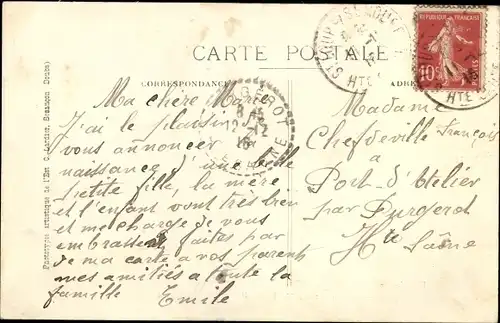 CARTE POSTALE
CORRESPONDANCE
Ma chère Marie
J'ai le plaisir de
vous annoncer la
naissance d'une belle
petite fille, la mère
et l'enfant vont très bien
et me charge de vous
embrasser, faites par
de ma carte a vos parent
mes amitiés a toute la
famille Emile
Madame
Chefdeville François
a
Port-d'Atelier
par Purgerot
Hte Saône
REPUBLIQUE FRANÇAISE
10c
HTE
PURGEROT
12-12
Phototypie artistique de l'Est C. Lardier, Besançon (Doubs)